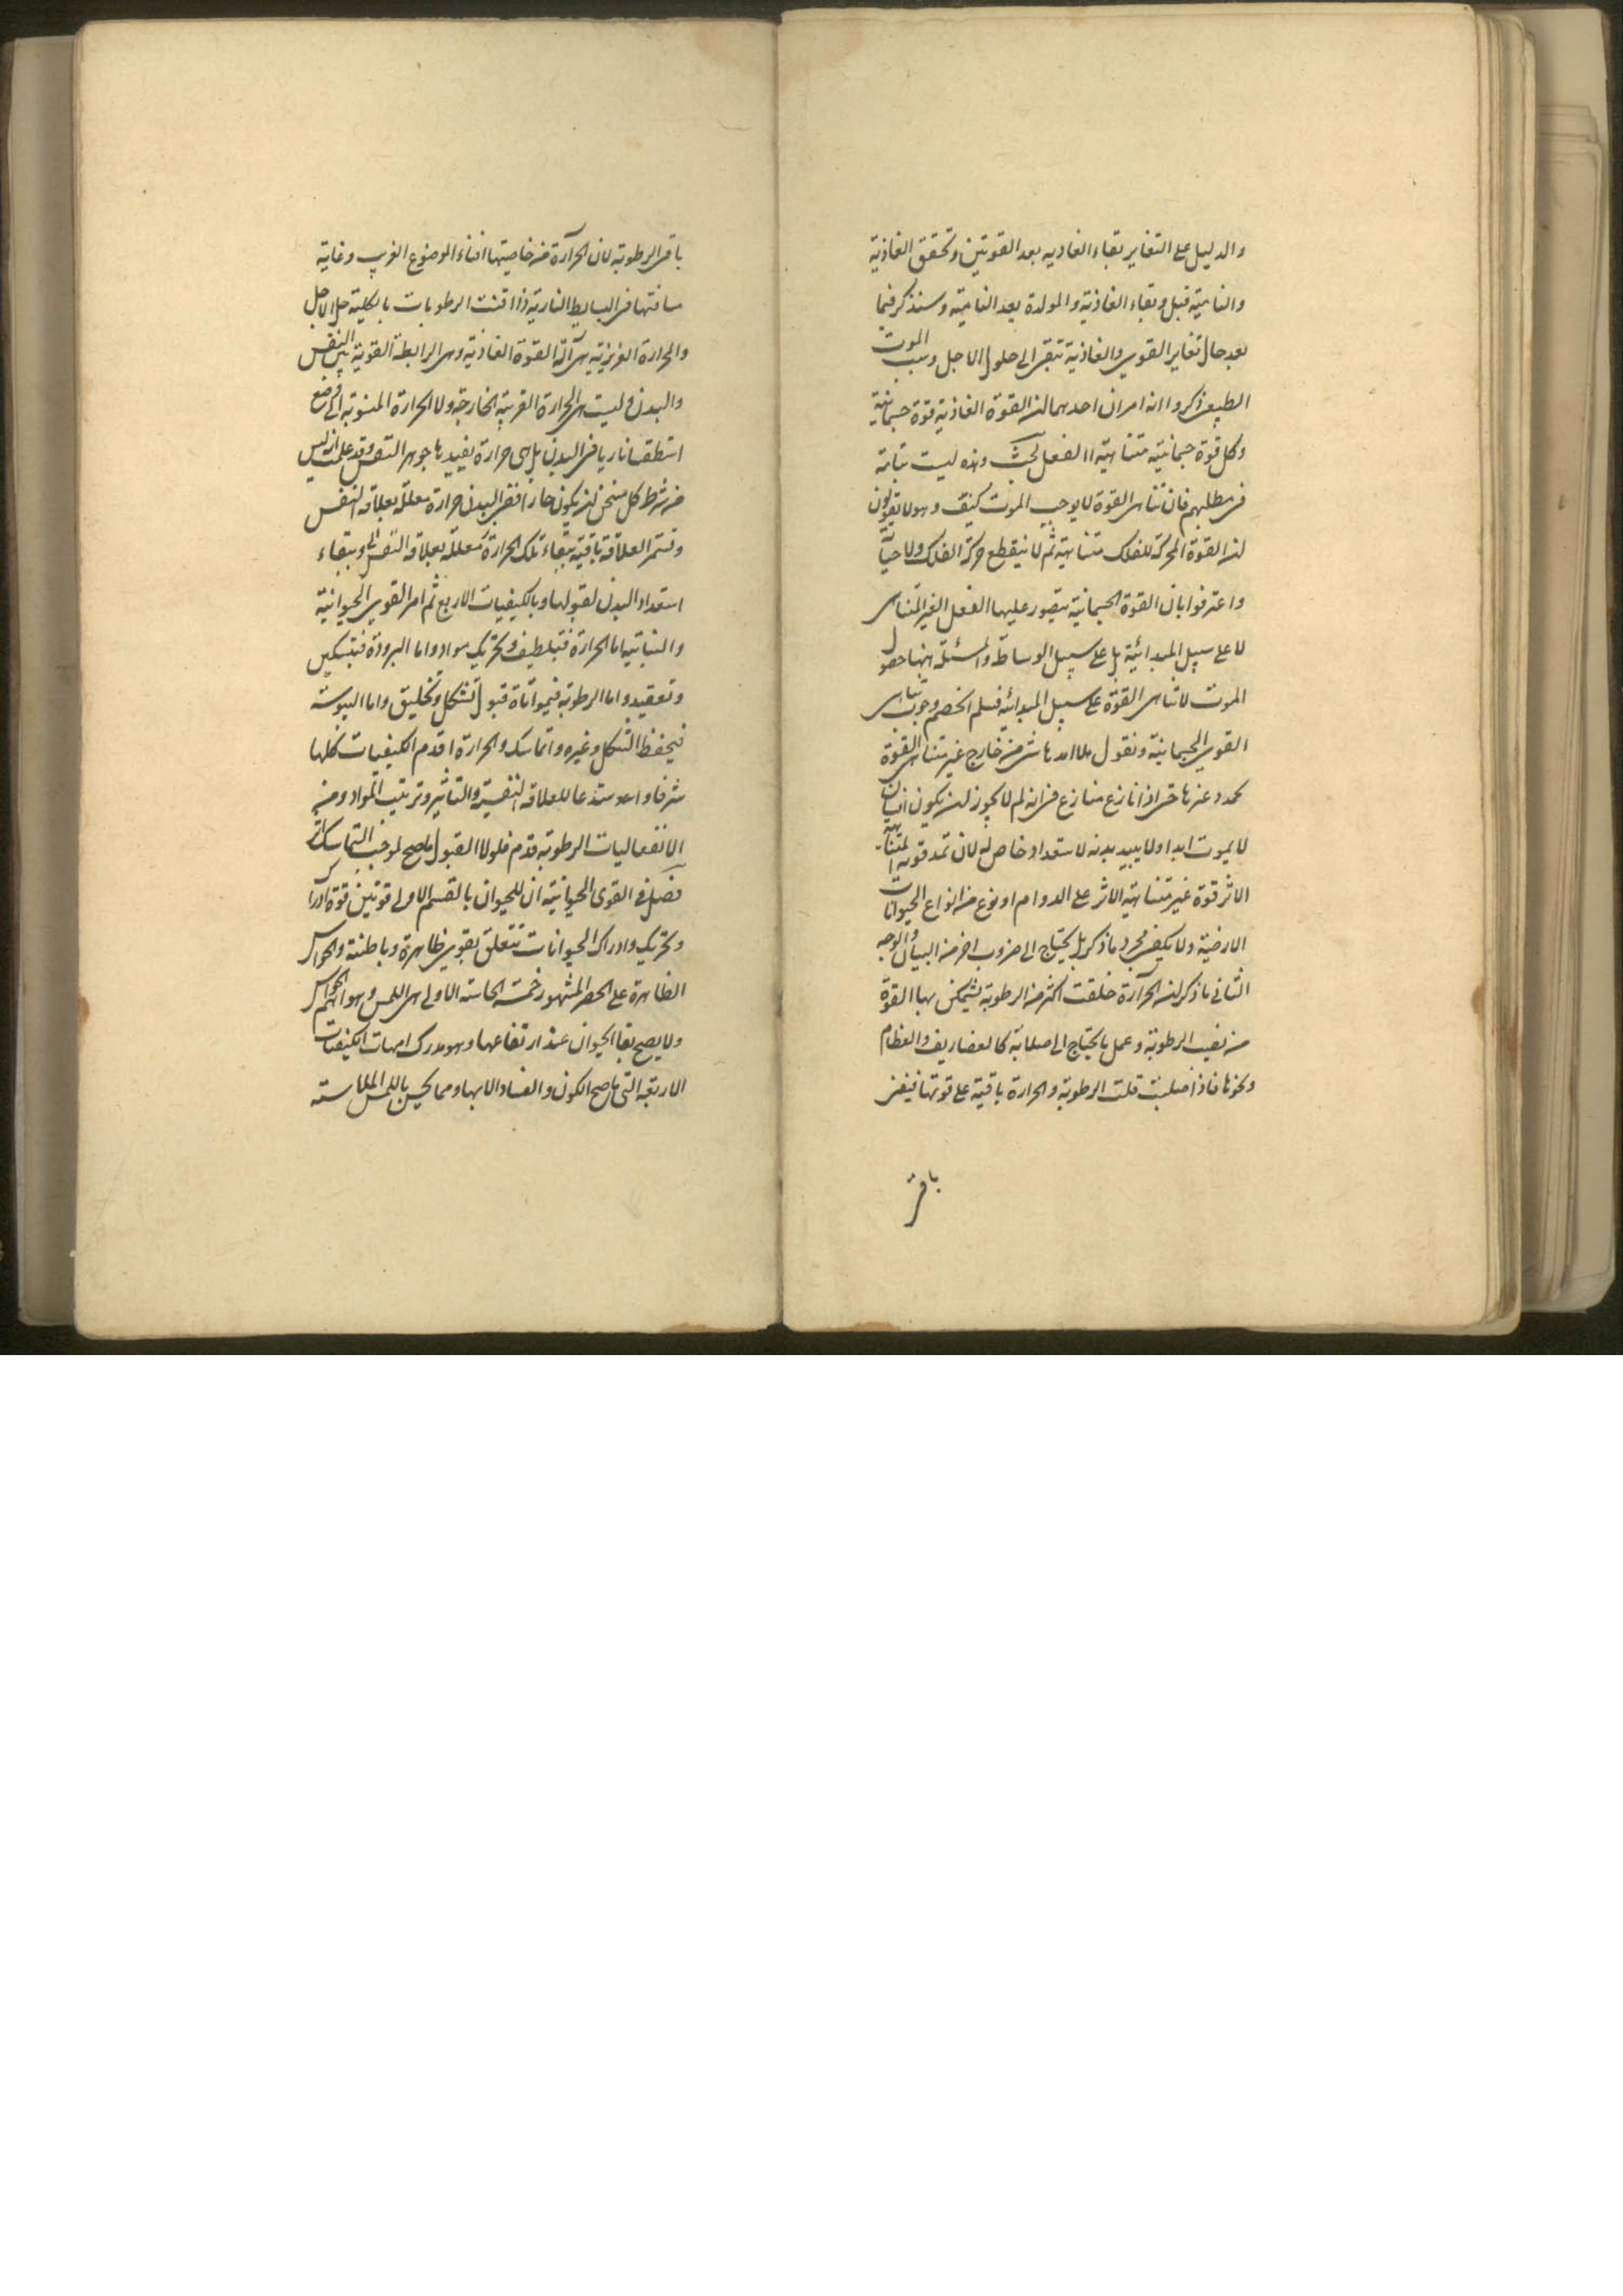 والدليل على التغاير بقاء الغاذيه بعد القوتين وتحقق الغاذية
والنامية قبل وبقاء الغاذية والمولدة بعد النامية وسنذكر فيما
بعد حال تغاير القوى والغاذية تبقى الى حلول الاجل وسبب الموت
الطبيعى ذكروا انه امران احدهما ان القوة الغاذية قوة جسمانية
وكل قوة جسمانية متناهية الفعل وهذه ليست بتامة
فى مطلبهم فان تناهى القوة لا يوجب الموت كيف وهولا يقولون
ان القوة المحركة للفلك متناهية ثم لا ينقطع حركة الفلك ولا حياته
واعترفوا بان القوة الجسمانية يتصور عليها الفعل الغير المتناهى
لا على سبيل المبدائية بل على سبيل الوساطة والمسئلة ههنا حصول
الموت لا تناهى القوة على سبيل المبدائية فسلم الخصم وجوب تناهى
القوى الجسمانية ونقول هلا امدها شئ من خارج غير متناهى القوة
حتى اذا نازع منازع فى انه لم لا يجوز ان يكون انسان
لا يموت ابدا ولا يبيد بدنه لاستعداد خاص له لان تمد قوته المتناهية
الاثر قوة غير متناهية الاثر على الدوام او نوع من انواع الحيوانات
الارضية ولا يكفى مجرد ما ذكر بل يحتاج الى ضروب اخر من البيان والوجه
الثانى ما ذكر ان الحرارة خلقت اكثر من الرطوبة ليتمكن بها القوة
من الرطوبة وعمل ما يحتاج الى صلابة كالغضاريف والعظام
ونحوها فاذا صلبت قلت الرطوبة والحرارة باقية على قوتها فيفنى
باقى
باقى الرطوبة لان الحرارة من خاصيتها افناء الموضوع الغريب وغاية
مسافتها فى البسايط النارية اذا افنت الرطوبات بالكلية حل الاجل
والحرارة الغريزية هى آلة القوة الغاذية وهى الرابطة القوية بين النفس
والبدن وليست هى الحرارة الغريبة الخارجة ولا الحرارة المنسوبة الى وضع
اسطقسا ناريا فى البدن بل هى حرارة يفيدها جوهر النفس وقد علمت ان ليس
من شرط كل مسخن ان يكون حارا ففى البدن حرارة معللة بعلاقة النفس
وتستمر العلاقة باقية ببقاء تلك الحرارة معللة بعلاقة النفس وببقاء
استعداد البدن لقبولها وبالكيفيات الاربع ثم امر القوى الحيوانية
والنباتية اما الحرارة فبتلطيف وتحريك مواد واما البرودة فبتسكين
وتعقيد واما الرطوبة قبول تشكل وتخليق واما اليبوسة
فيحفظ الشكل وغيره واتماسك والحرارة اقدم الكيفيات كلها
شرفا للعلاقة النفسية والتاثير وترتيب المواد ومن
الانفعاليات الرطوبة قدم فلولا القبول ما صح لموجب التماسك اثر
فصل فى القوى الحيوانية ان للحيوان بالقسم الاولى قوتين قوة ادراك
وتحريك وادراك الحيوانات تتعلق بقوى ظاهرة وباطنة والحواس
الظاهرة على الحصر المشهور خمسة الحاسة الاولى هى اللمس وهو اهم الحواس
ولا يصح بقا الحيوان عند ارتفاعها وهو مدرك امهات الكيفيات
الاربعة التى ما صح الكون والفساد الا بها ومما يحس باللمس الملاسة